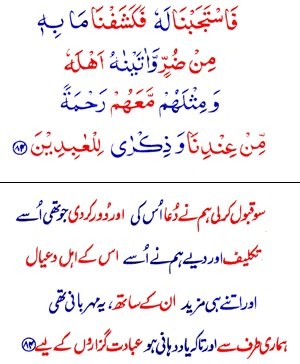 فَاسْتَجَبْنَا لَهٗ فَكَشَفْنَا مَا بِهٖ
مِنْ ضُرٍّ وَّاٰتَيْنٰهُ اَهْلَهٗ
وَمِثْلَهُمْ مَّعَهُمْ رَحْمَةً
مِّنْ عِنْدِنَا وَذِكْرٰى لِلْعٰبِدِيْنَ ﴿۸۴﴾
سو قبول کرلی ہم نے دُعا اُس کی اور دُور کردی جو تھی اُسے
تکلیف اور دیے ہم نے اُسے اس کے اہل و عیال
اور اتنے ہی مزید ان کے ساتھ، یہ مہربانی تھی
ہماری طرف سے اور تاکہ یاد دہانی ہو عبادت گزاروں کے لیے ﴿۸۴﴾